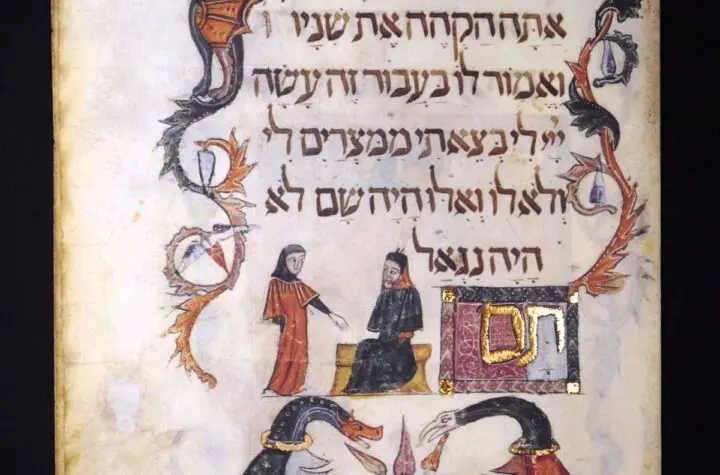 אתה הקהה את שניו ו
ואמור לו בעבור זה עשה
ייי לי בצאתי ממצרים לי
ולא לו ואלו היה שם לא
היה נגאל
תם